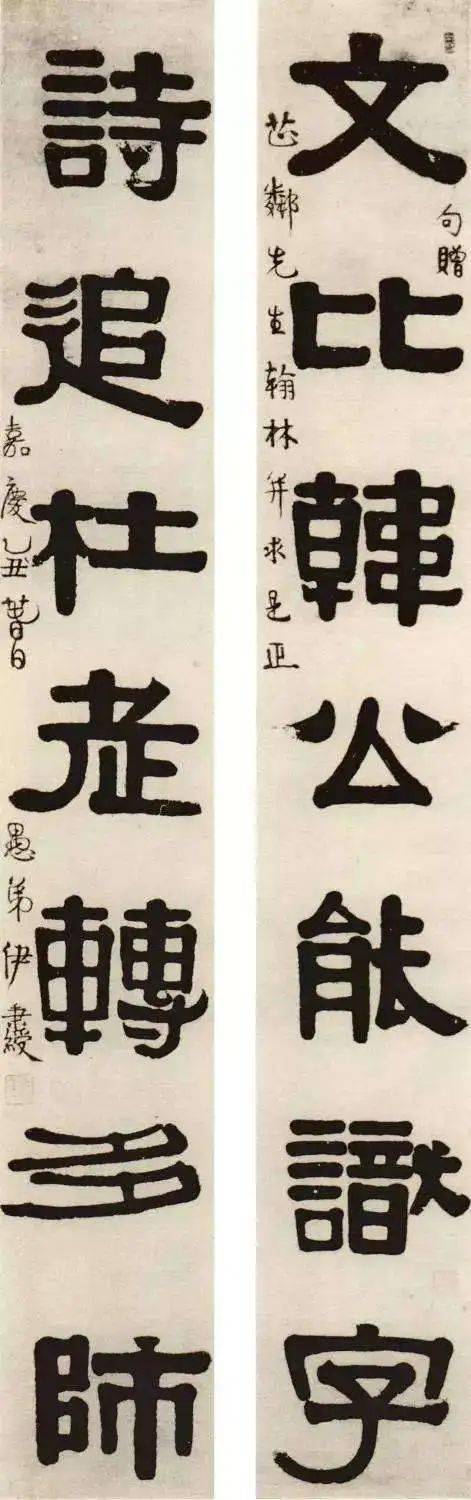 文比韓公能識字
句贈
芷鄰先生翰林并求是正
詩追杜老轉多師
嘉慶乙丑暮春日
愚弟伊秉綬